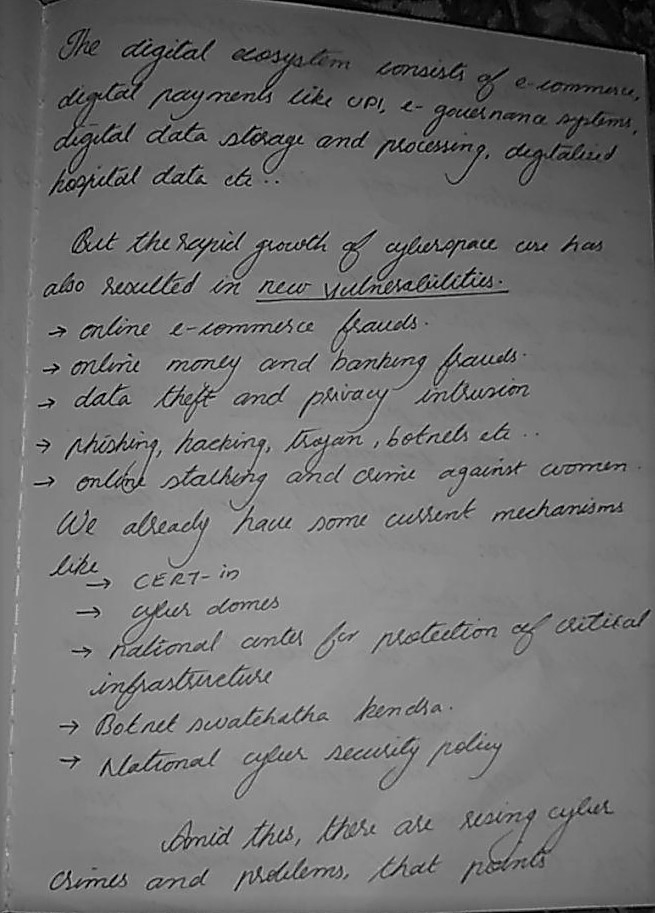 The digital ecosystem consists of e-commerce,
digital payments like UPI, e-governance systems,
digital data storage and processing, digitalised
hospital data etc..
But the rapid growth of cyberspace use has
also resulted in new vulnerabilities.
→ online e-commerce frauds.
→ online money and banking frauds.
→ data theft and privacy intrusion
→ phishing, hacking, trojan, botnets etc..
→ online stalking and crime against women.
We already have some current mechanisms
like
→ CERT-in
→ cyber domes
→ national center for protection of critical
infrastructure
→ Botnet swatchatha kendra.
→ National cyber security policy
Amid this, there are rising cyber
crimes and problems, that points